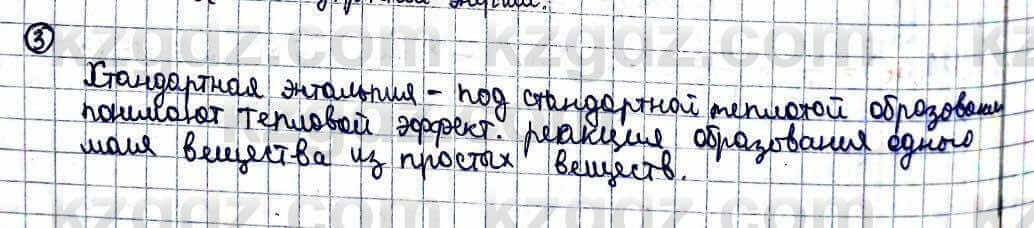 ③
Стандартная энтальпия – под стандартной теплотой образовани
понимают тепловой эффект. реакция образования одного
моля вещества из простых веществ.